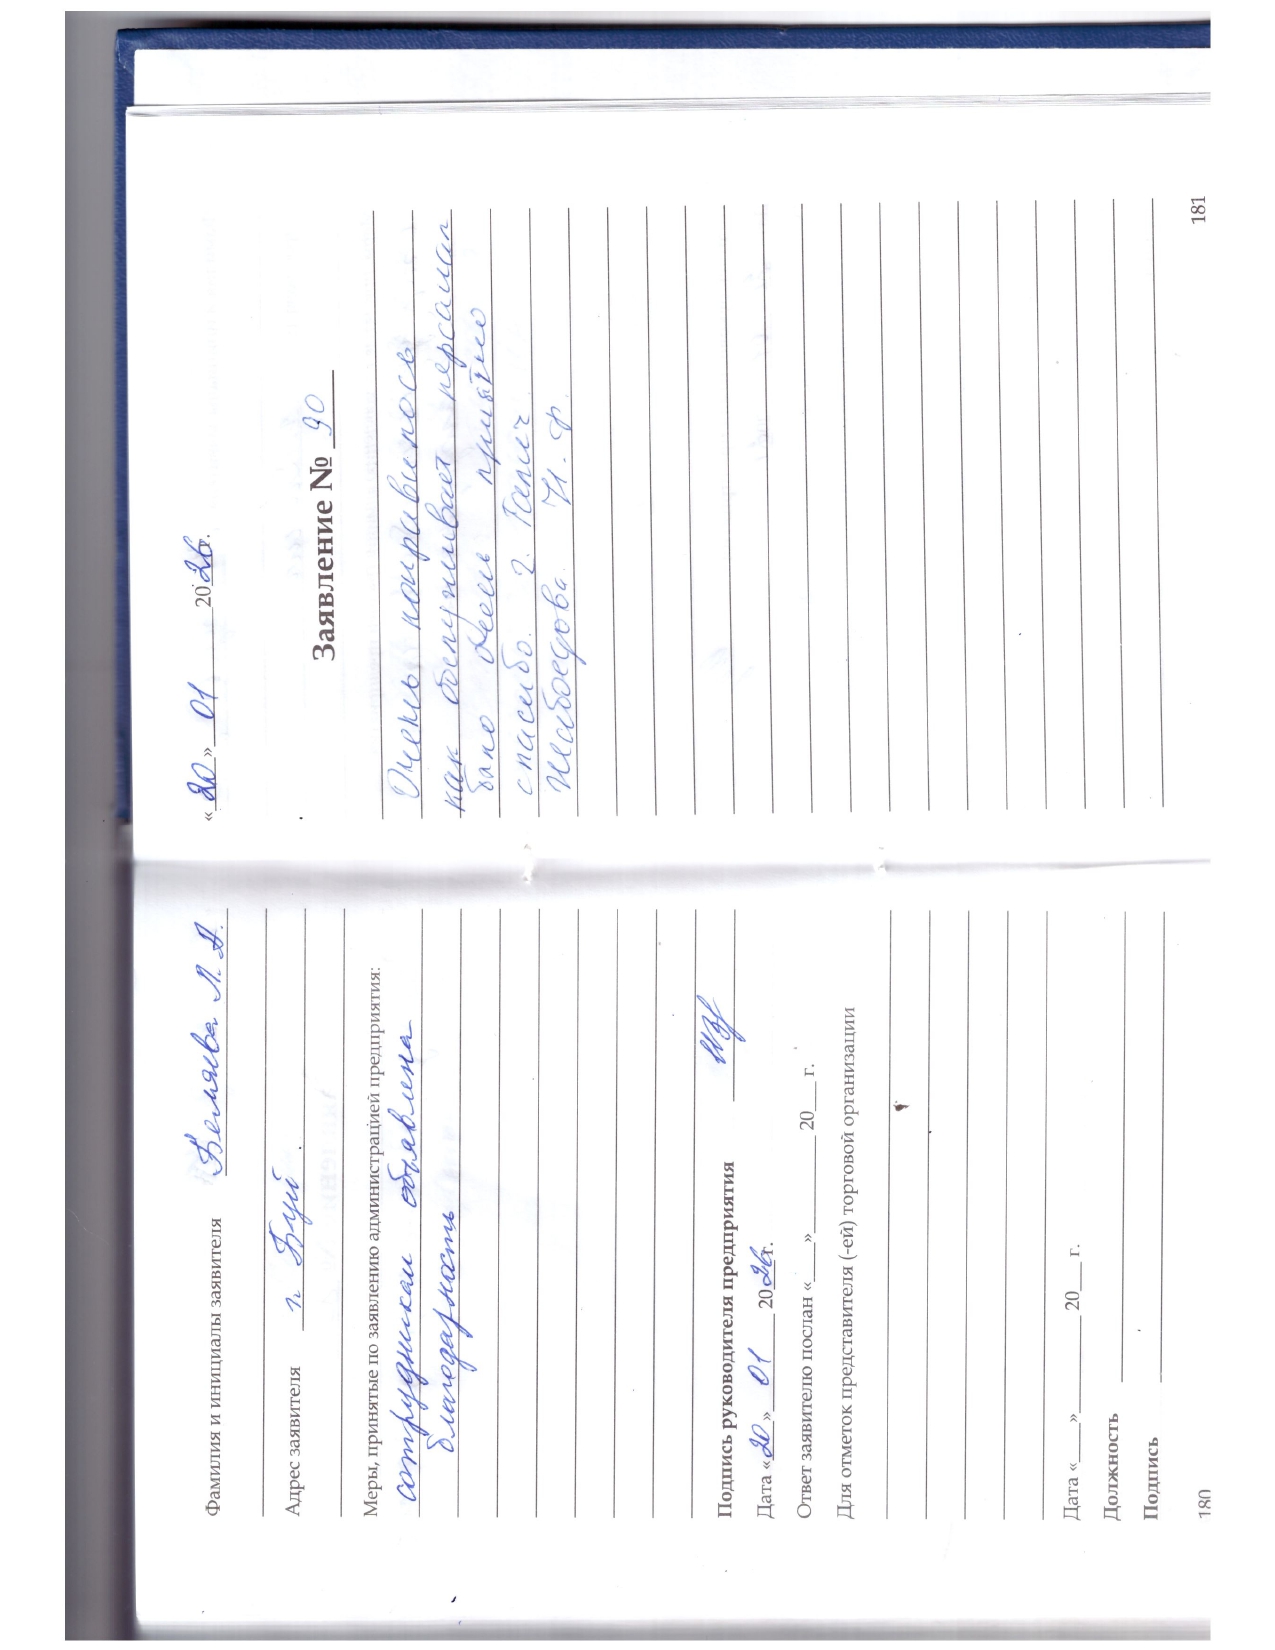 Фамилия и инициалы заявителя Беляева Л. А.
Адрес заявителя г. Буй
Меры, принятые по заявлению администрацией предприятия:
сотрудникам объявлена
благодарность
Подпись руководителя предприятия
Дата «20» 01 2026г.
Ответ заявителю послан «___»__________ 20___ г.
Для отметок представителя (-ей) торговой организации
Дата «___»__________ 20___ г.
Должность
Подпись
180
«20» 01 2026г.
Заявление № 90
Очень понравилось
как обслуживает персанал
было очень приятно
спасибо. г. Галич
И. Ф.
181